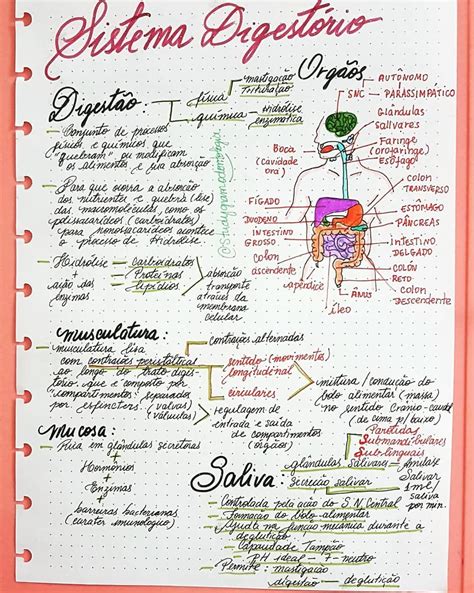 Sistema Digestório
Digestão:
física
mastigação
trituração
química
Hidrólise
enzimática
@studygramdemonologia
- Conjunto de processos
físicos e químicos que
"quebram" ou modificam
os alimentos e sua absorção
- Para que ocorra a absorção
dos nutrientes e quebra (lise)
das macromoléculas, como os
polissacarídeos (carboidratos)
para monossacarídeos acontece
o processo de Hidrólise.
- Hidrólise
+
ação das
enzimas
- carboidratos
- Proteínas
- lipídios
absorção
transporte
através da
membrana
celular
Orgãos
AUTÔNOMO
SNC - PARASSIMPÁTICO
Glândulas
salivares
Faringe
(orofaringe)
Esôfago
Boca
(cavidade
oral)
Colon
TRANSVERSO
FÍGADO
ESTÔMAGO
DUODENO
PÂNCREAS
INTESTINO
GROSSO
INTESTINO
DELGADO
Colon
ascendente
COLÓN
RETO
Colon
DESCENDENTE
apêndice
ÂNUS
íleo
musculatura:
- musculatura lisa
com contrações peristálticas
ao longo do trato diges-
tório que é composto por
"compartimentos" separados
por esfíncters. (valvas)
(válvulas)
contrações alternadas
sentido (movimentos)
longitudinal
circulares
mistura / condução do
bolo alimentar (massa)
no sentido crânio-caudal
(de cima p/ baixo)
regulagem de
entrada e saída
de compartimentos
(orgãos)
Mucosa:
- Rica em glândulas secretoras
+
Hormônios
+
Enzimas
+
barreiras bacterianas
(caráter imunológico)
Saliva:
glândulas salivares
Parótidas
Submandibulares
Sub-linguais
Amilase
Salivar
1 mL/
saliva
por min.
secreção salivar
- Controlada pela ação do S.N. Central
- Formação do bolo alimentar
- Ajuda na função mecânica durante a
deglutição
- Capacidade Tampão
- PH ideal - 7 - neutro
- Permite: mastigação
digestão - deglutição